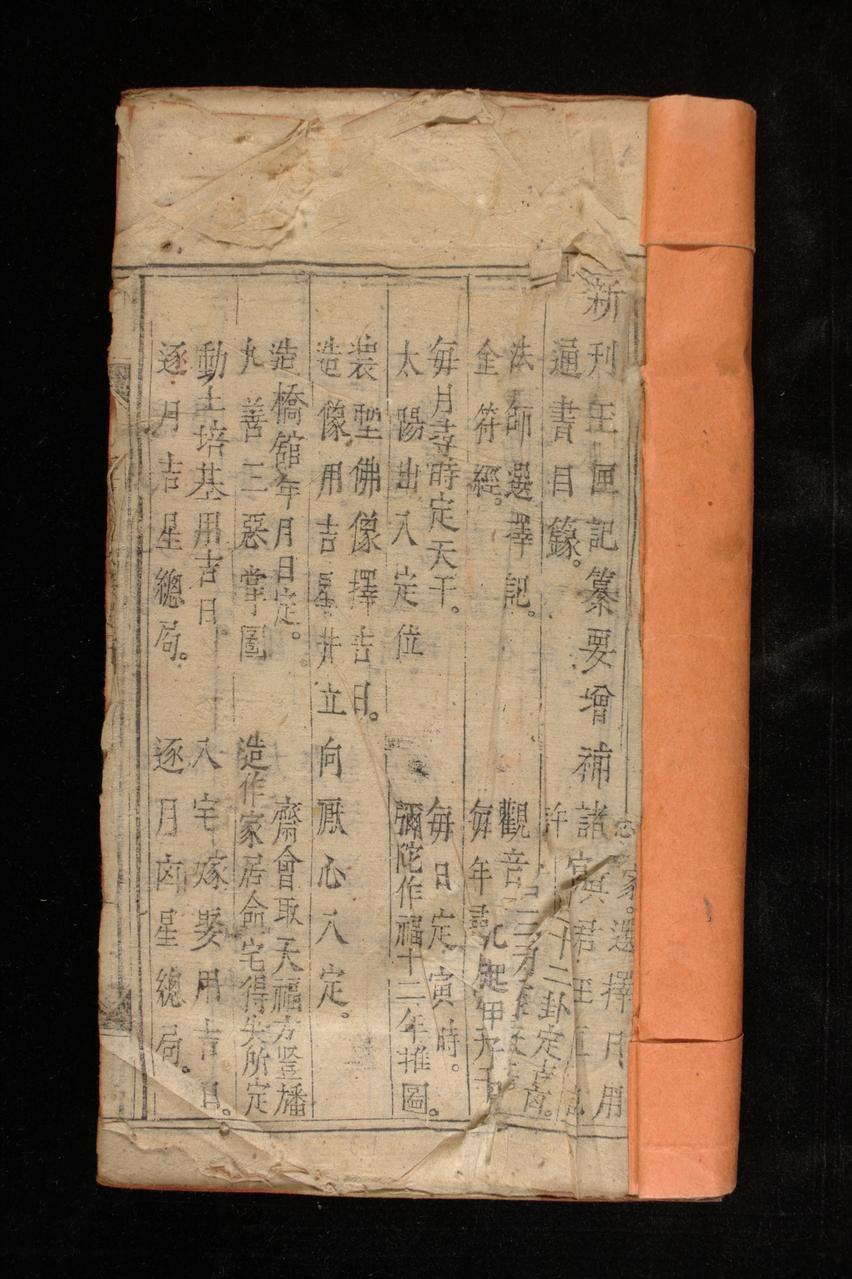 新刋玉匣記纂要增補諸家選擇日用
通書目錄。
法師選擇記。
全符經。
觀音
十二卦定吉凶。
每年
每月壽時定天干。
太陽出入定位
每日定寅時。
彌陀作福十二年推圖。
装塑佛像擇吉日。
造像用吉星井立向厭心入定。
造橋舘年月日定。
九善三惡掌圖
齋會取天福方竪旛
造作家居命宅得失所定
動土培基用吉日。
入宅嫁娶用吉日。
逐月吉星總局。
逐月凶星總局。